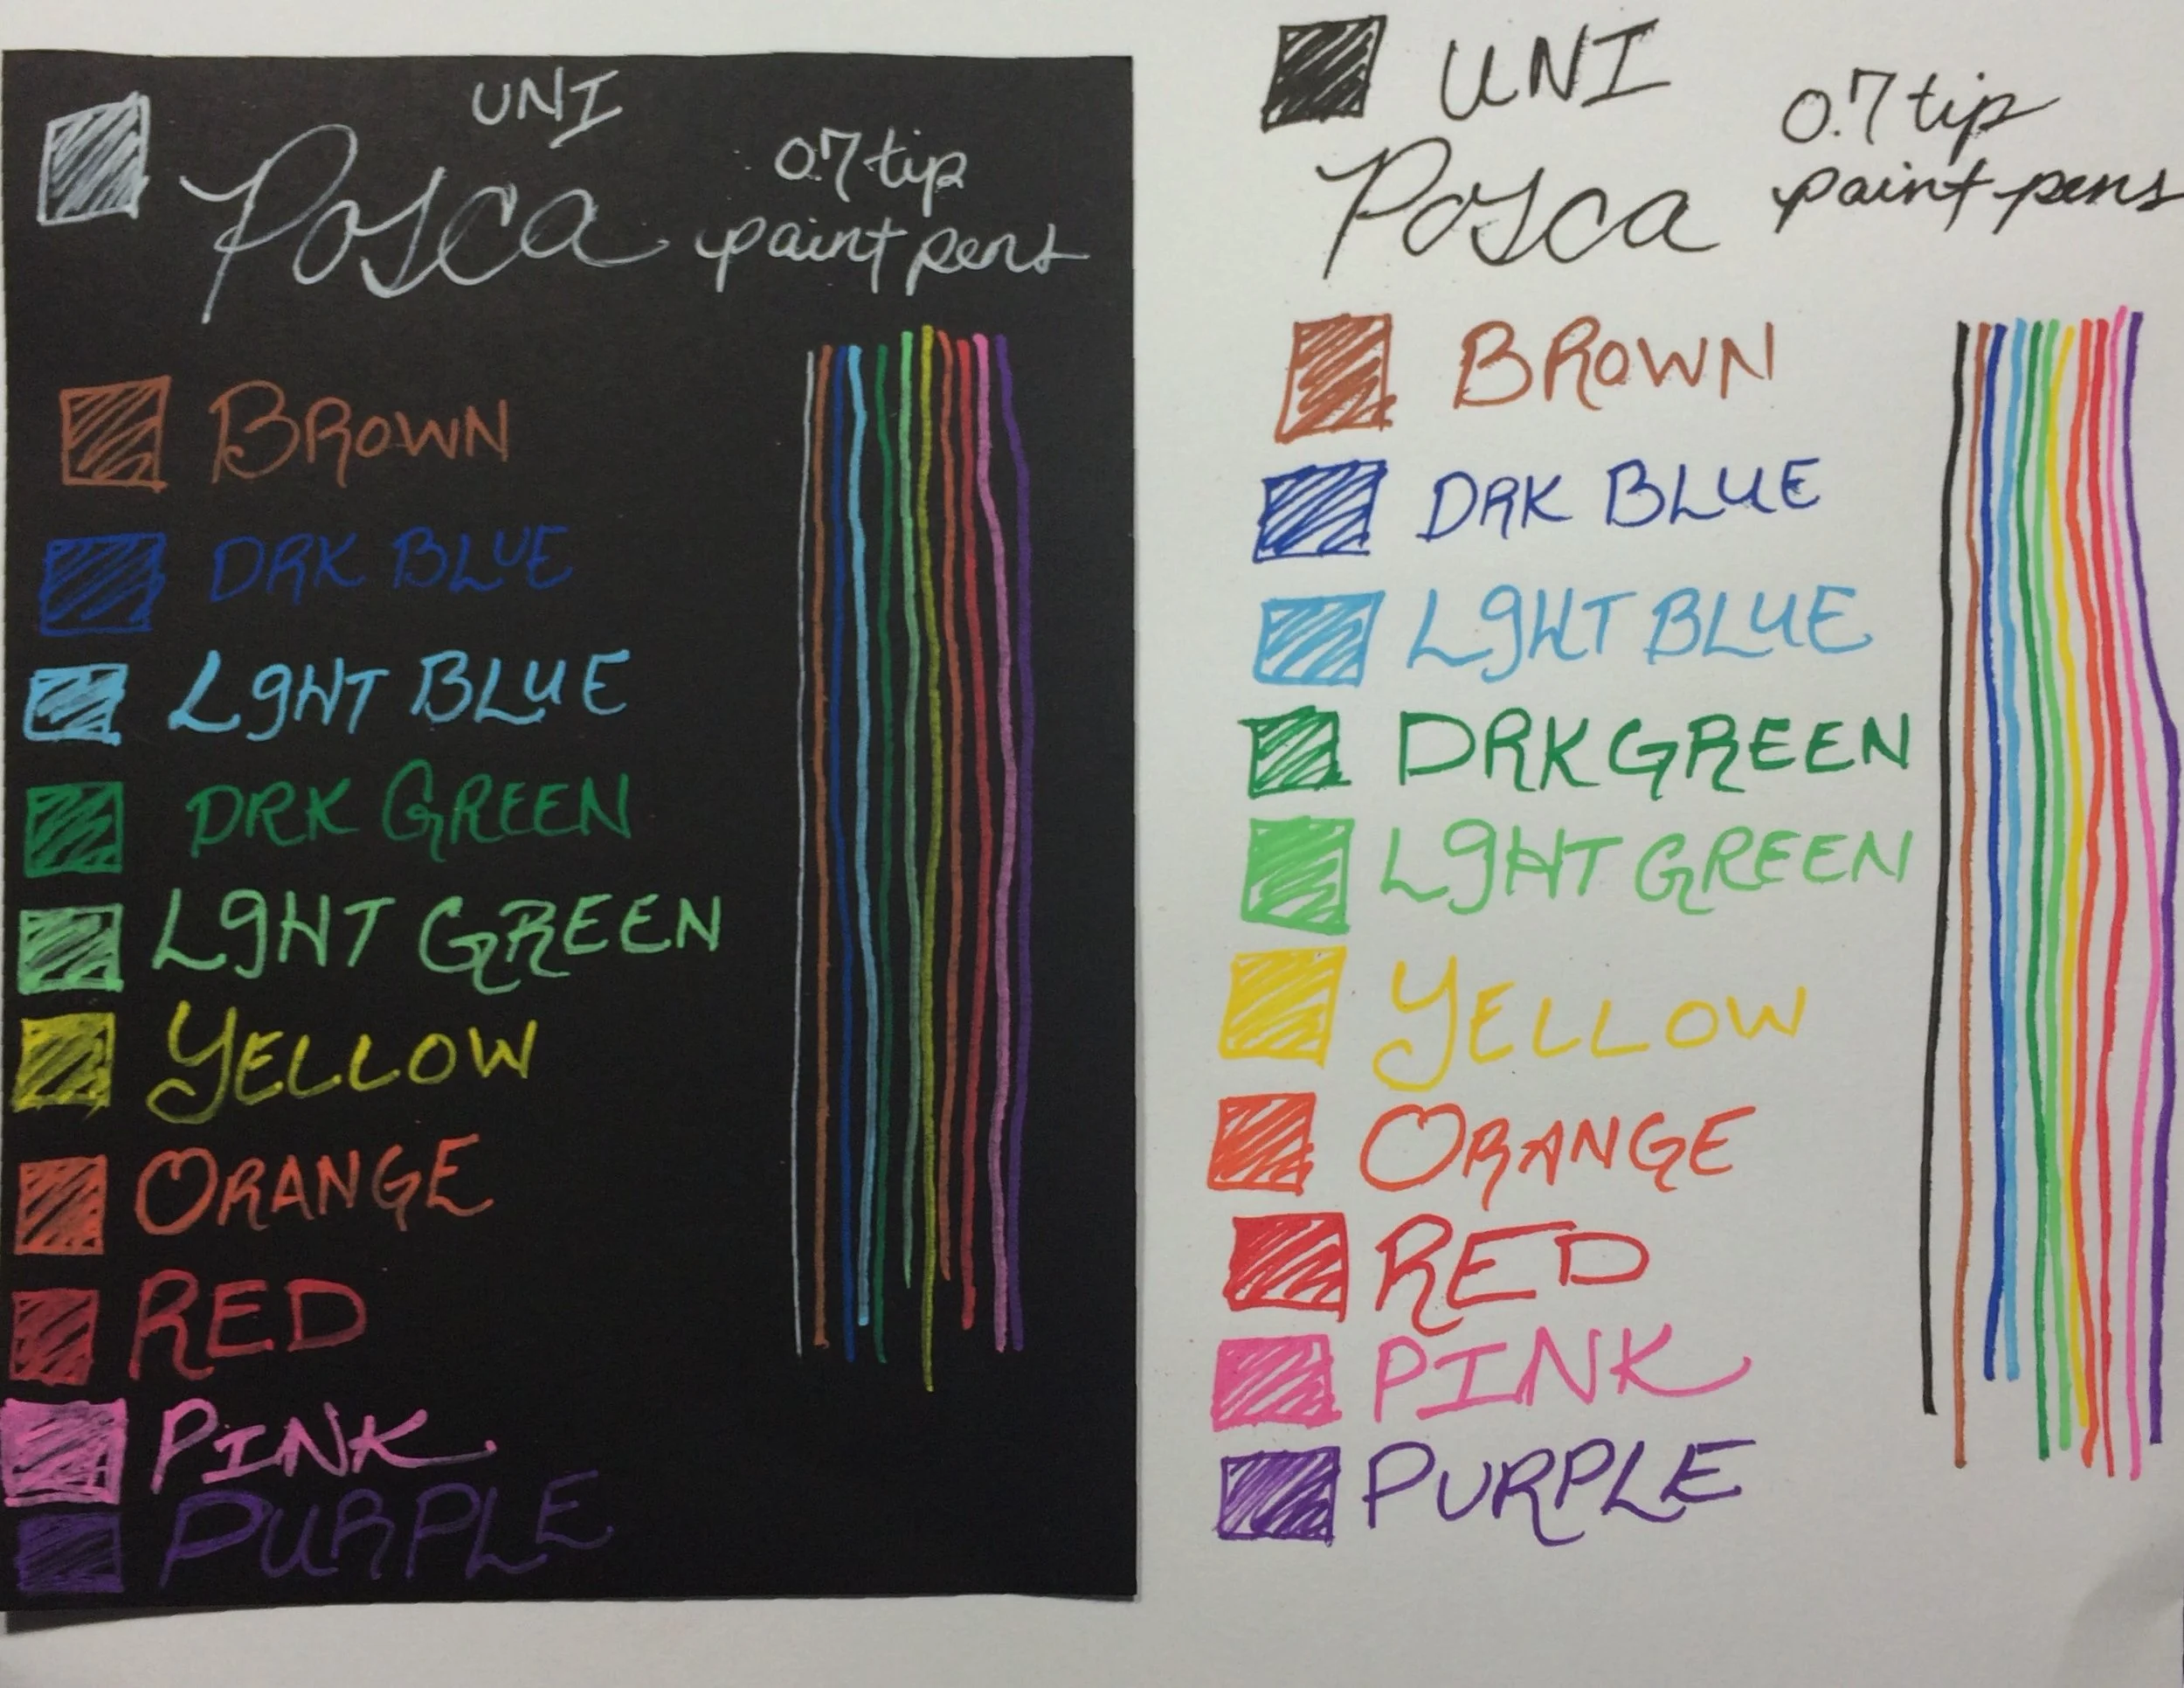 UNI
Posca
07 tip
paint pens
BROWN
DRK BLUE
LgHT BLUE
DRK GREEN
LgHT GREEN
YELLOW
ORANGE
RED
PINK
PURPLE
UNI
Posca
0.7 tip
paint pens
BROWN
DRK BLUE
LgHT BLUE
DRK GREEN
LgHT GREEN
YELLOW
ORANGE
RED
PINK
PURPLE